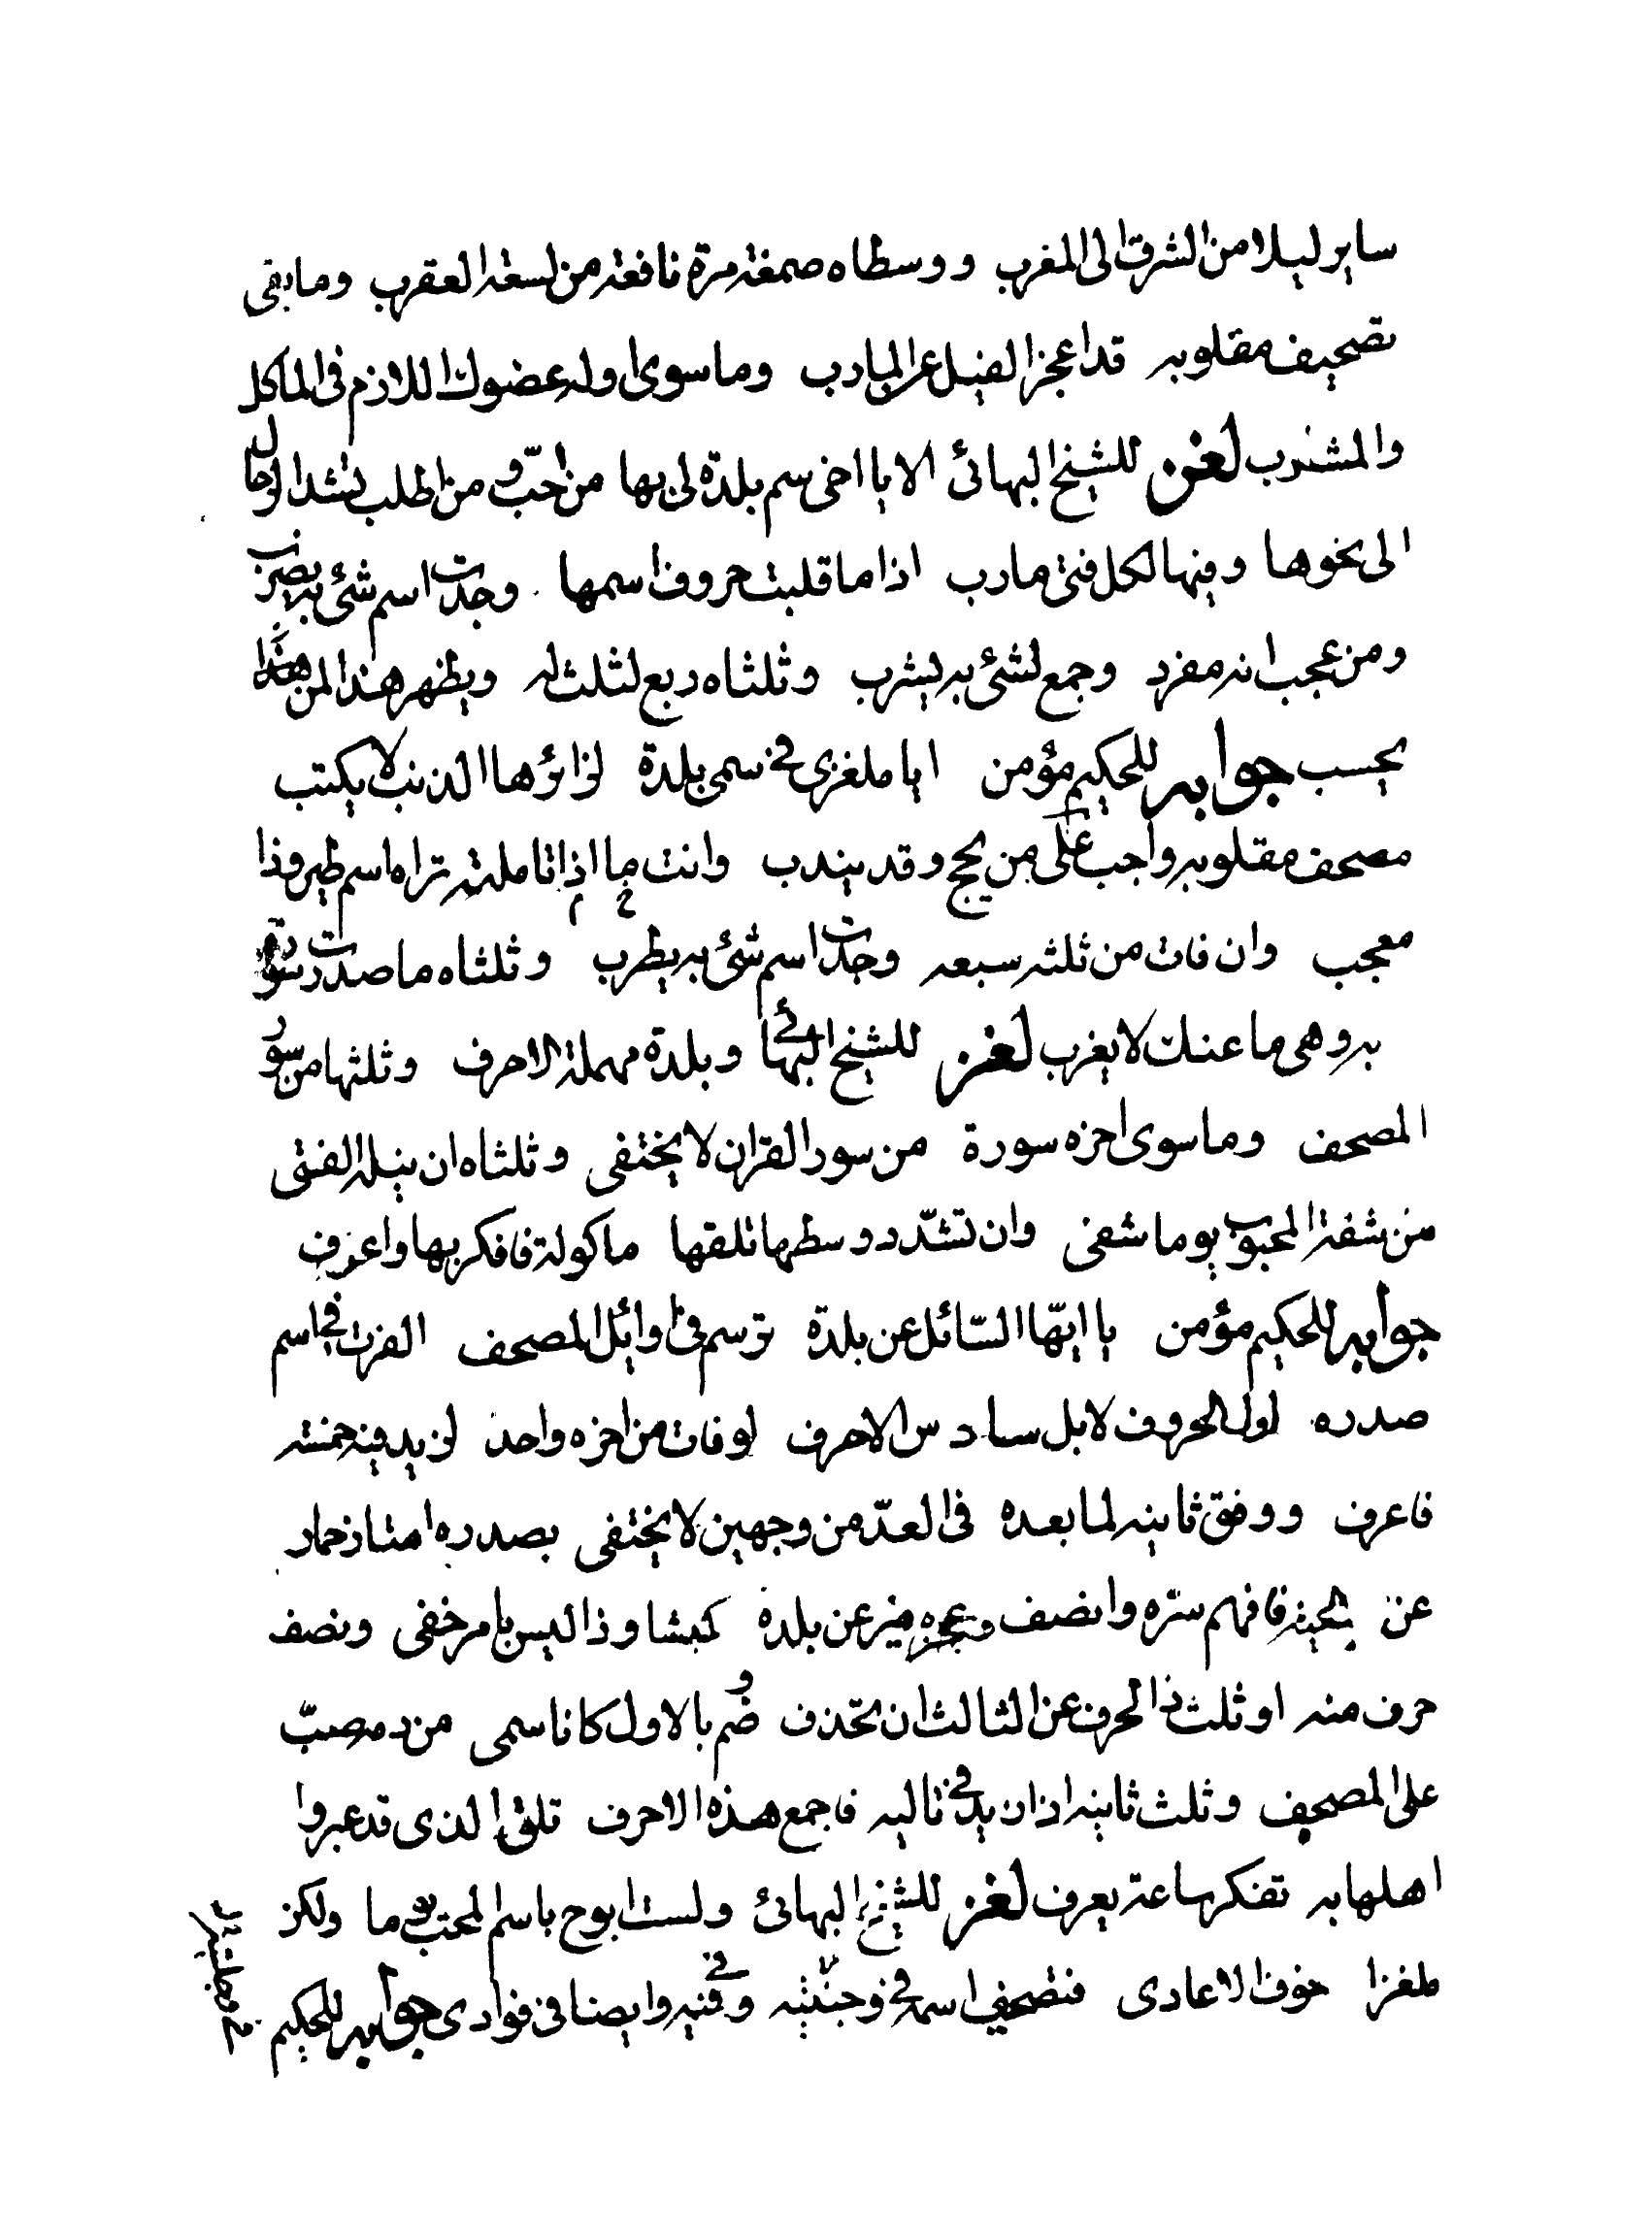 ساير ليلا من الشرق الى المغرب ووسطاه صمغة مرة نافعة من لسعة العقرب وما بقى
تصحيف مقلوبه قد اعجز الفيل عن المارب وما سوى اوله عضوك اللازم فى الماكل
والمشرب لغز للشيخ البهائى الا يا اخى سم بلدة لى بها من احب ومن اطلب تشد الرحال
الى نحوها وفيها لكل فتى مارب اذا ما قلبت حروف اسمها وجدت اسم شئ به يضرب
ومن عجب انه مفرد وجمع لشئ به يشرب وثلثاه ربع لثلث له ويظهر هذا لمن
يحسب جوابه للحكيم مؤمن ايا ملغزى فى سمى بلدة لزائرها الذنب لا يكتب
مصحف مقلوبه واجب على من يحج وقد يندب وانت اذا ما تاملته تراه اسم طير وذا
معجب وان فات من ثلثه سبعه وجدت اسم شئ به يطرب وثلثاه ما صدرت سورة
به وهى ما عنك لا يغرب لغز للشيخ البهائى وبلدة مهملة الاحرف وثلثها من سور
المصحف وما سوى اخره سورة من سور القران لا يختفى وثلثاه ان ينله الفتى
من شفة المحبوب يوما شفى وان تشدد وسطها تلقها ماكولة فافكر بها واعرف
جوابه للحكيم مؤمن يا ايها السائل عن بلدة ترسم فى اوائل المصحف الغزت فى اسم
صدره اول الحروف لا بل سادس الاحرف لو فات من اخره واحد لزيد فيه خمسة
فاعرف ووفق ثانيه لما بعده فى العد من وجهين لا يختفى بصدره امتاز حمار
عن بلحية فافهم سره وانصف وعجزه ميز عن بلدة كمبشا وذا ليس بامر خفى ونصف
حرف منه او ثلث ذا الحرف عن الثالث ان تحذف وضم بالاول كانا سمى من دمه صب
على المصحف وثلث ثانيه اذا زيد فى تاليه فاجمع هذه الاحرف تلق الذى قد عبروا
اهلها به تفكر ساعة يعرف لغز للشيخ البهائى ولست ابوح باسم المحب يوما ولكن
ملغزا خوف الاعادى فتصحيف اسمه فى وجنتيه وفى فيه وايضا فى فوادى جوابه للحكيم